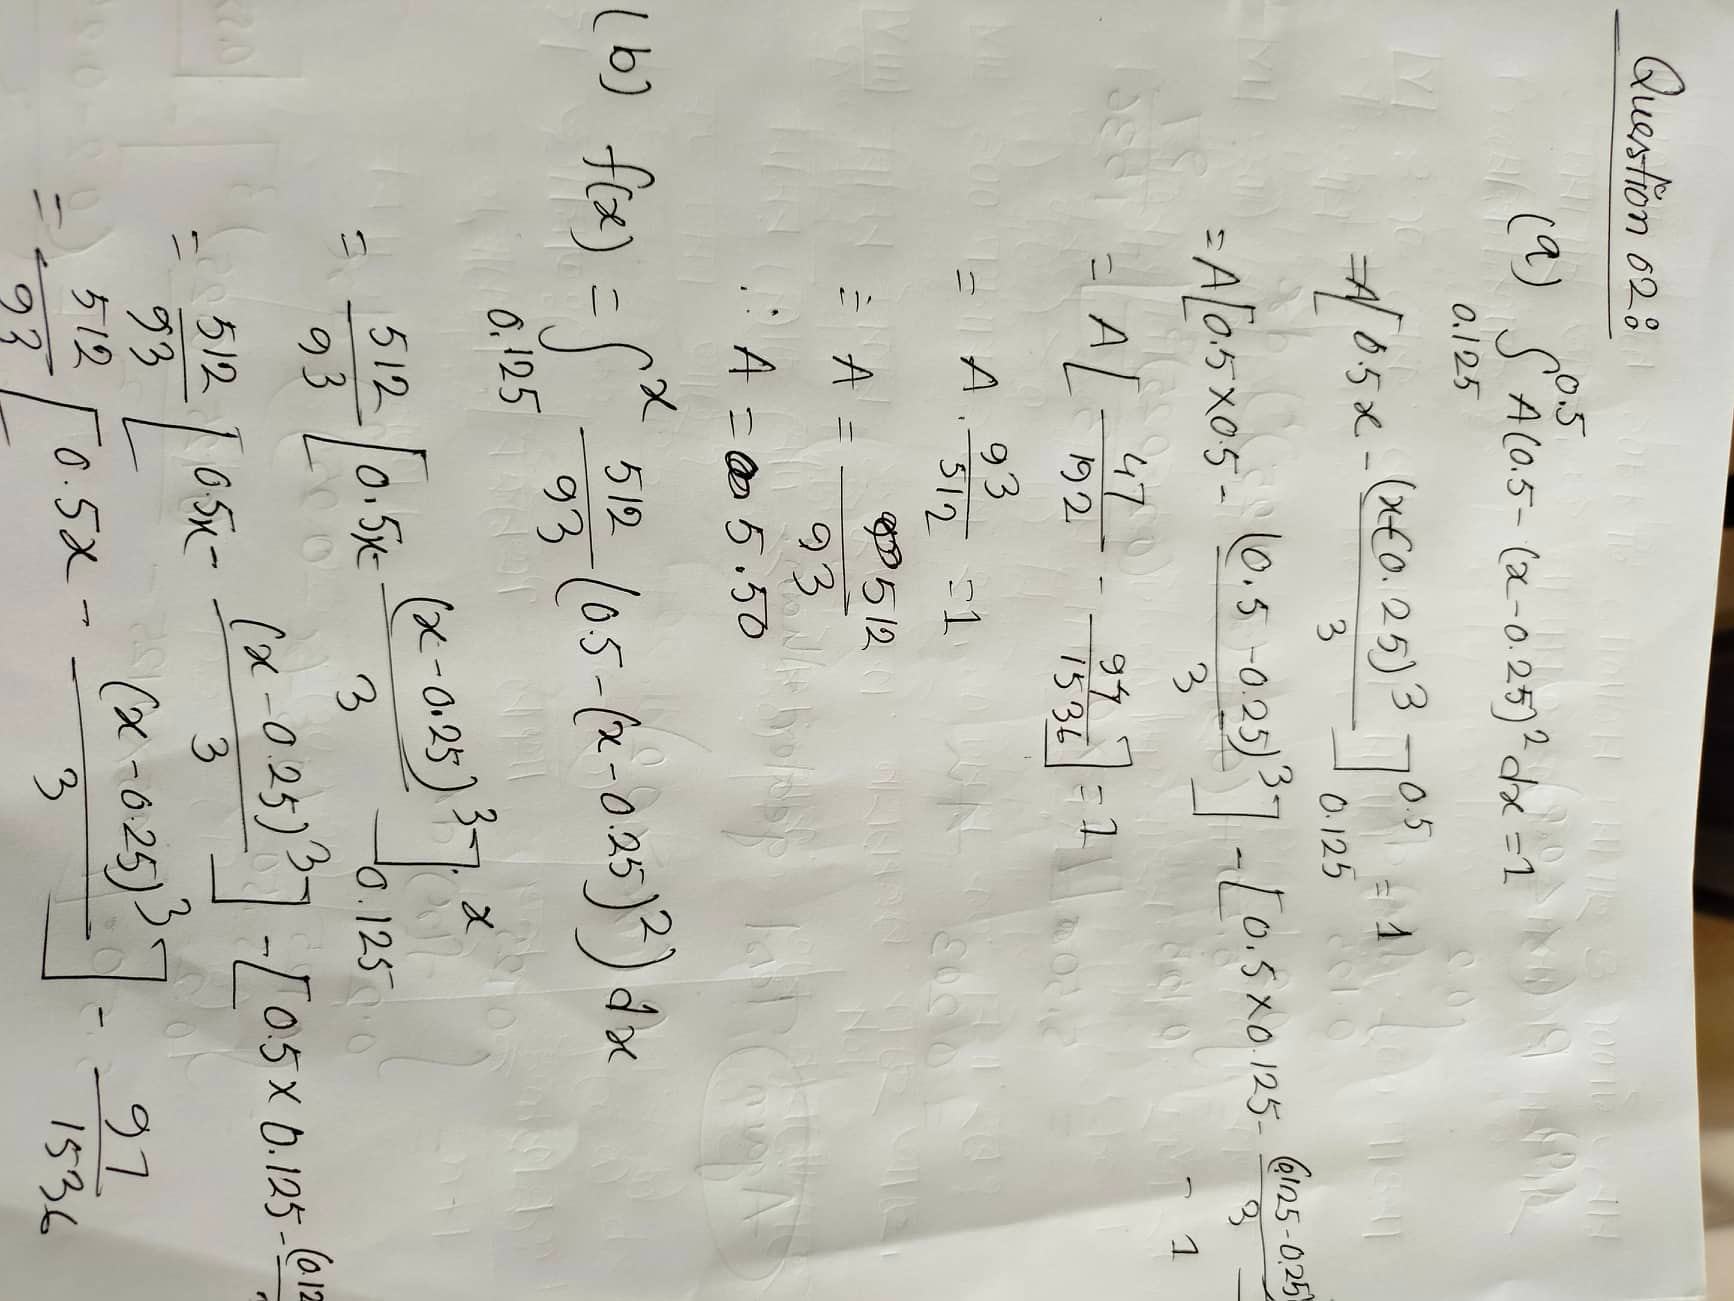 Question 02:
(a) ∫_{0.125}^{0.5} A(0.5 - (x - 0.25)² dx = 1
= A[0.5x - (x - 0.25)³/3]_{0.125}^{0.5} = 1
= A[0.5 × 0.5 - (0.5 - 0.25)³/3] - [0.5 × 0.125 - (0.125 - 0.25)/3
- 1
= A[47/192 - 97/1536] = 1
= A . 93/512 = 1
∴ A = 512/93
∴ A = 5.50
(b) f(x) = ∫_{0.125}^{x} 512/93 (0.5 - (x - 0.25)²) dx
= 512/93 [0.5x - (x - 0.25)³/3]_{0.125}^{x}
= 512/93 [0.5x - (x - 0.25)³/3] - [0.5 × 0.125 - (0.12
= 512/93 [0.5x - (x - 0.25)³/3] - 97/1536